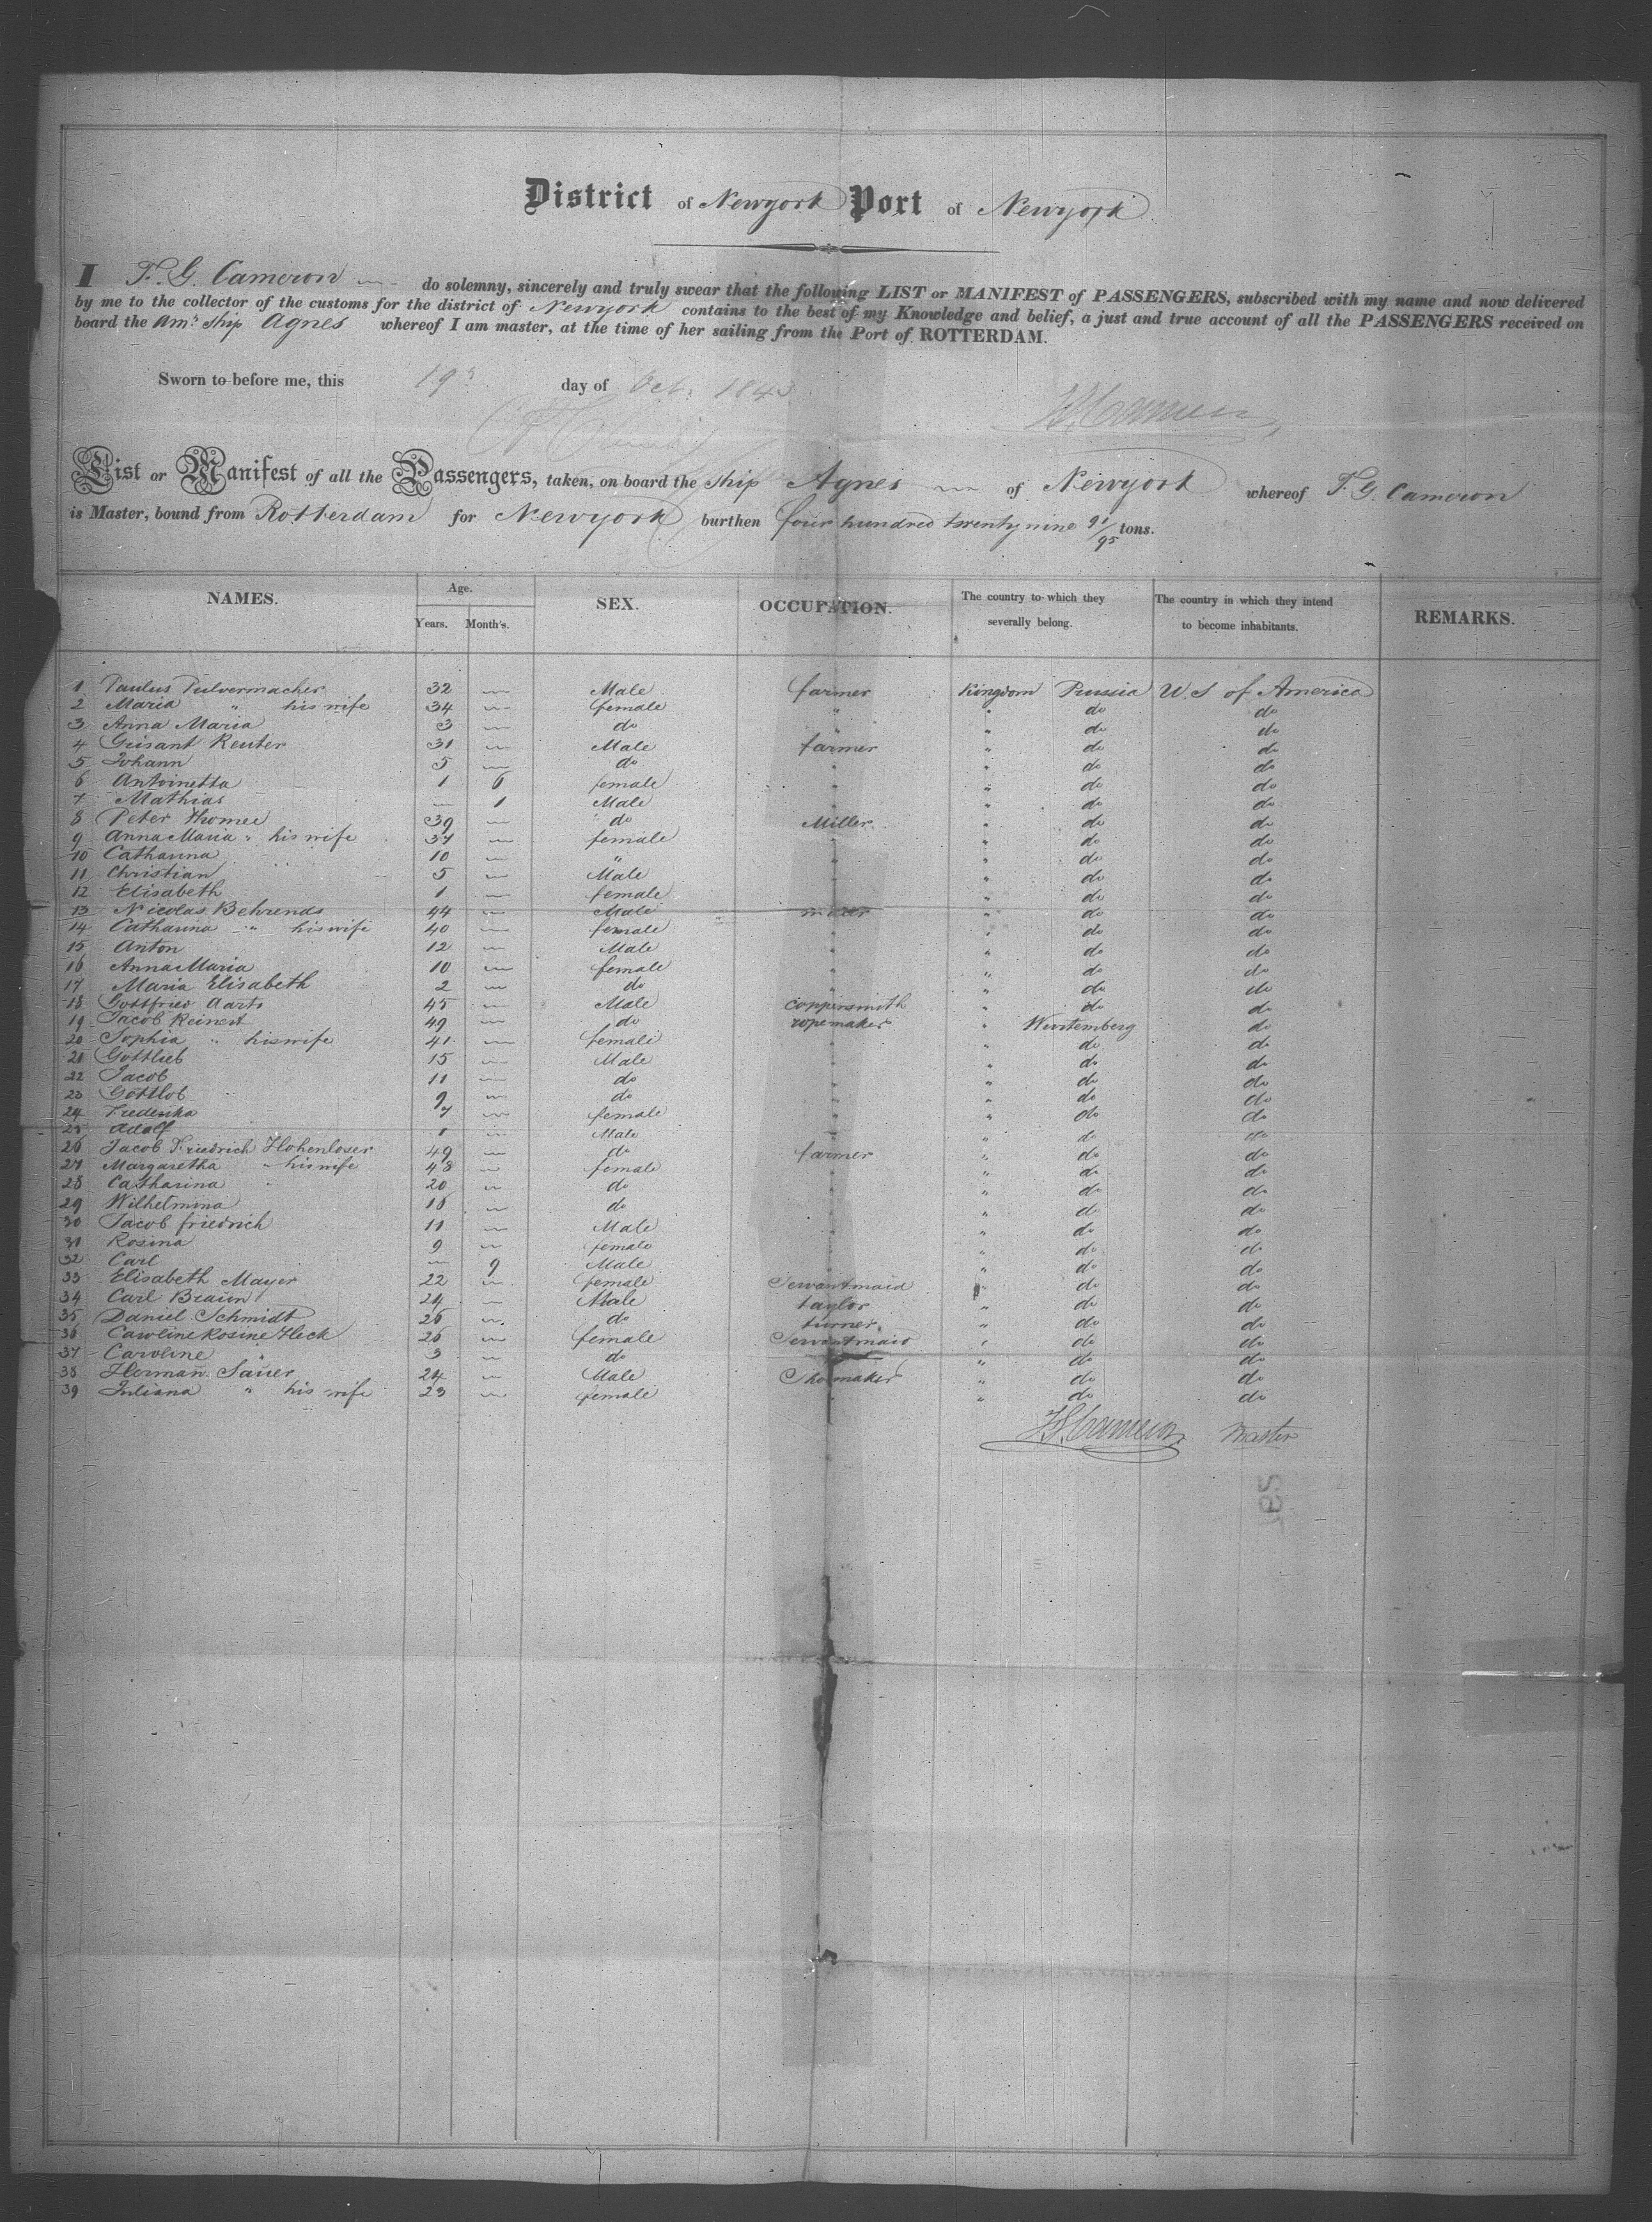 District of Newyork Port of Newyork
I F. G. Cameron do solemny, sincerely and truly swear that the following LIST or MANIFEST of PASSENGERS, subscribed with my name and now delivered
by me to the collector of the customs for the district of Newyork contains to the best of my Knowledge and belief, a just and true account of all the PASSENGERS received on
board the Amn ship Agnes whereof I am master, at the time of her sailing from the Port of ROTTERDAM.
Sworn to before me, this 19 day of Oct. 1843
List or Manifest of all the Passengers, taken, on board the ship Agnes of Newyork whereof F. G. Cameron
is Master, bound from Rotterdam for Newyork burthen four hundred twenty nine 91/95 tons.
NAMES. Age. Years. Month's. SEX. OCCUPATION. The country to which they severally belong. The country in which they intend to become inhabitants. REMARKS.
1 Paulus Pulvermacher 32 — Male farmer Kingdom Prussia U.S of America
2 Maria " his wife 34 — female " " do do
3 Anna Maria 3 — do " " do do
4 Grisant Reuter 31 — Male farmer " do do
5 Johann 5 — do " " do do
6 Antoinetta 1 6 female " " do do
7 Mathias — 1 Male " " do do
8 Peter Thomee 39 — do Miller " do do
9 Anna Maria " his wife 37 — female " " do do
10 Catharina 10 — " " " do do
11 Christian 5 — Male " " do do
12 Elisabeth 1 — female " " do do
13 Nicolas Behrends 44 — Male miller " do do
14 Catharina " his wife 40 — female " " do do
15 Anton 12 — Male " " do do
16 Anna Maria 10 — female " " do do
17 Maria Elisabeth 2 — do " " do do
18 Gottfried Aarts 45 — Male coppersmith " do do
19 Jacob Reinert 49 — do ropemaker " Wurtemberg do
20 Sophia " his wife 41 — female " " do do
21 Gottlieb 15 — Male " " do do
22 Jacob 11 — do " " do do
23 Gottlob 9 — do " " do do
24 Frederika 7 — female " " do do
25 Adolf 1 — Male " " do do
26 Jacob Friedrich Hohenloser 49 — do farmer " do do
27 Margaretha " his wife 48 — female " " do do
28 Catharina " 20 — do " " do do
29 Wilhelmina 16 — do " " do do
30 Jacob friedrich 11 — Male " " do do
31 Rosina 9 — female " " do do
32 Carl — 9 Male " " do do
33 Elisabeth Mayer 22 — female Servantmaid " do do
34 Carl Braun 24 — Male taylor " do do
35 Daniel Schmidt 26 — do turner " do do
36 Caroline Rosine Heck 26 — female Servantmaid " do do
37 Caroline " 3 — do " do do
38 Herman Sauer 24 — Male Shoemaker " do do
39 Juliana " his wife 23 — female " " do do
F. G. Cameron Master